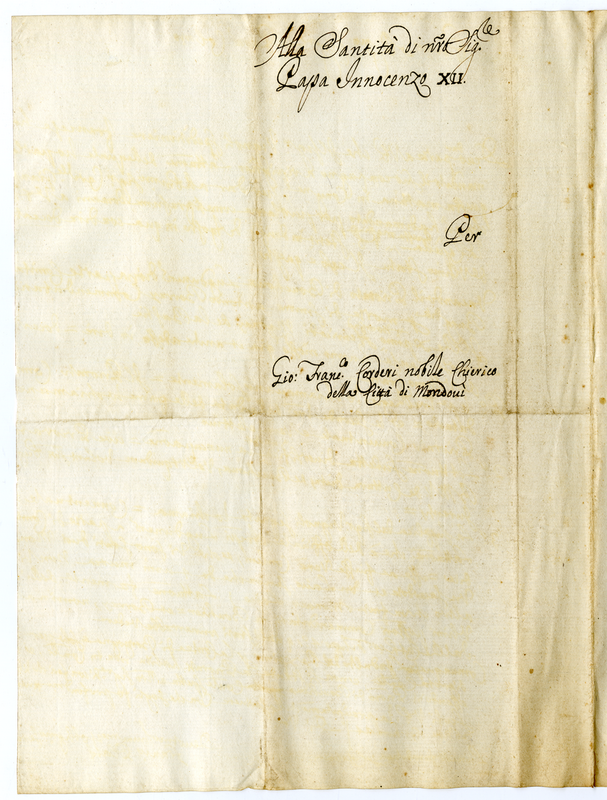 Alla Santità di nr̃o Sig.re
Papa Innocenzo XII.
Per
Gio: Franc.o Corderi nobile Chierico
della Città di Mondovì